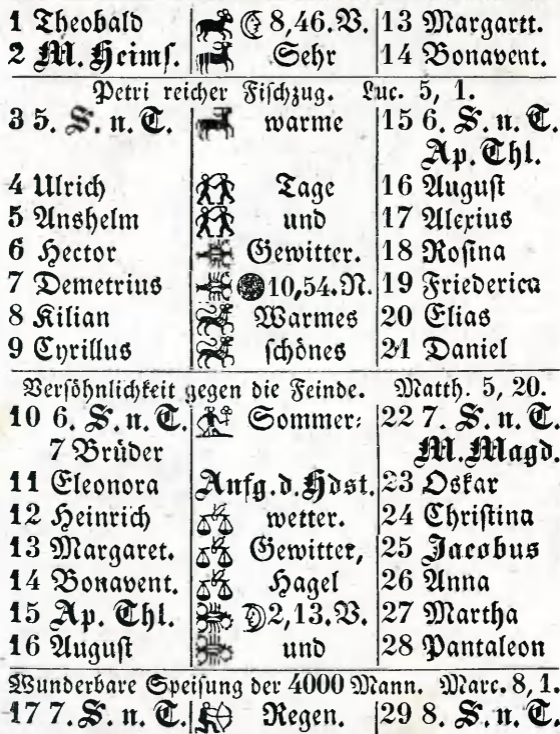 1 Theobald 8,46.V. 13 Margartt.
2 M. Heims. Sehr 14 Bonavent.
Petri reicher Fischzug. Luc. 5, 1.
3 5. S. n. T. warme 15 6. S. n. T.
Ap. Thl.
4 Ulrich Tage 16 August
5 Anshelm und 17 Alexius
6 Hector Gewitter. 18 Rosina
7 Demetrius 10,54.N. 19 Friederica
8 Kilian Warmes 20 Elias
9 Cyrillus schönes 21 Daniel
Versöhnlichkeit gegen die Feinde. Matth. 5, 20.
10 6. S. n. T. Sommer: 22 7. S. n. T.
7 Brüder M. Magd.
11 Eleonora Anfg.d.Hdst. 23 Oskar
12 Heinrich wetter. 24 Christina
13 Margaret. Gewitter, 25 Jacobus
14 Bonavent. Hagel 26 Anna
15 Ap. Thl. 2,13.V. 27 Martha
16 August und 28 Pantaleon
Wunderbare Speisung der 4000 Mann. Marc. 8, 1.
17 7. S. n. T. Regen. 29 8. S. n. T.